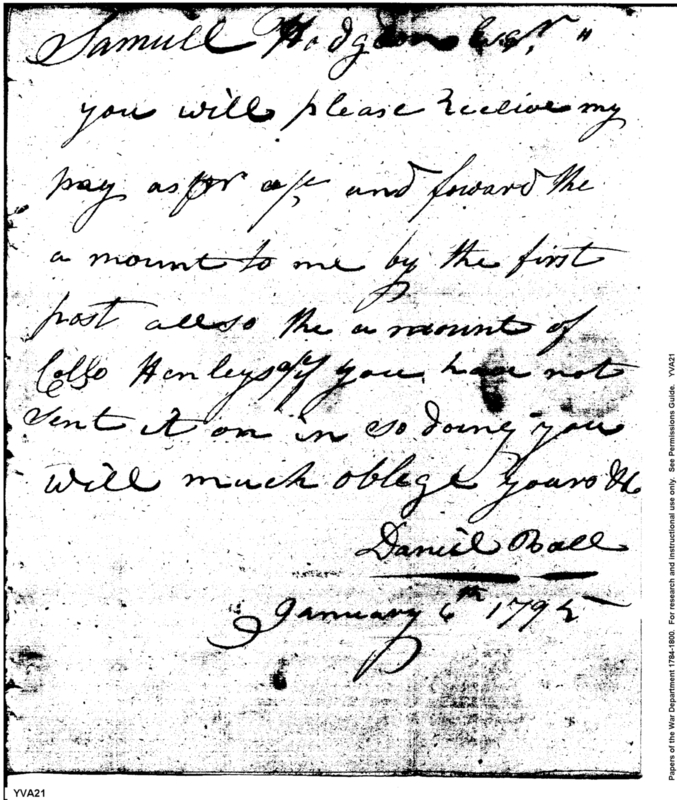 Samuell Hodgdon Esqr. "
you will please Receive my
pay as pr a/c and foward the
a mount to me by the first
post allso the a mount of
Collo Henleys a/c if you have not
sent it on in so doing you
will much oblege yours &c
Daniel Ball
January 6th 1795
Papers of the War Department 1784-1800. For research and instructional use only. See Permissions Guide. YVA21
YVA21